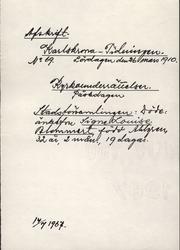 Afskrift.
Karlskrona-Tidningen.
No 69. Lördagen den 26 mars 1910.
Kyrkounderrättelser.
Påskdagen
Stadsförsamlingen: Döde:
Signe Louise
Blommert, född Ahlgren
22 år, 2 mån, 19 dagar.
1967.